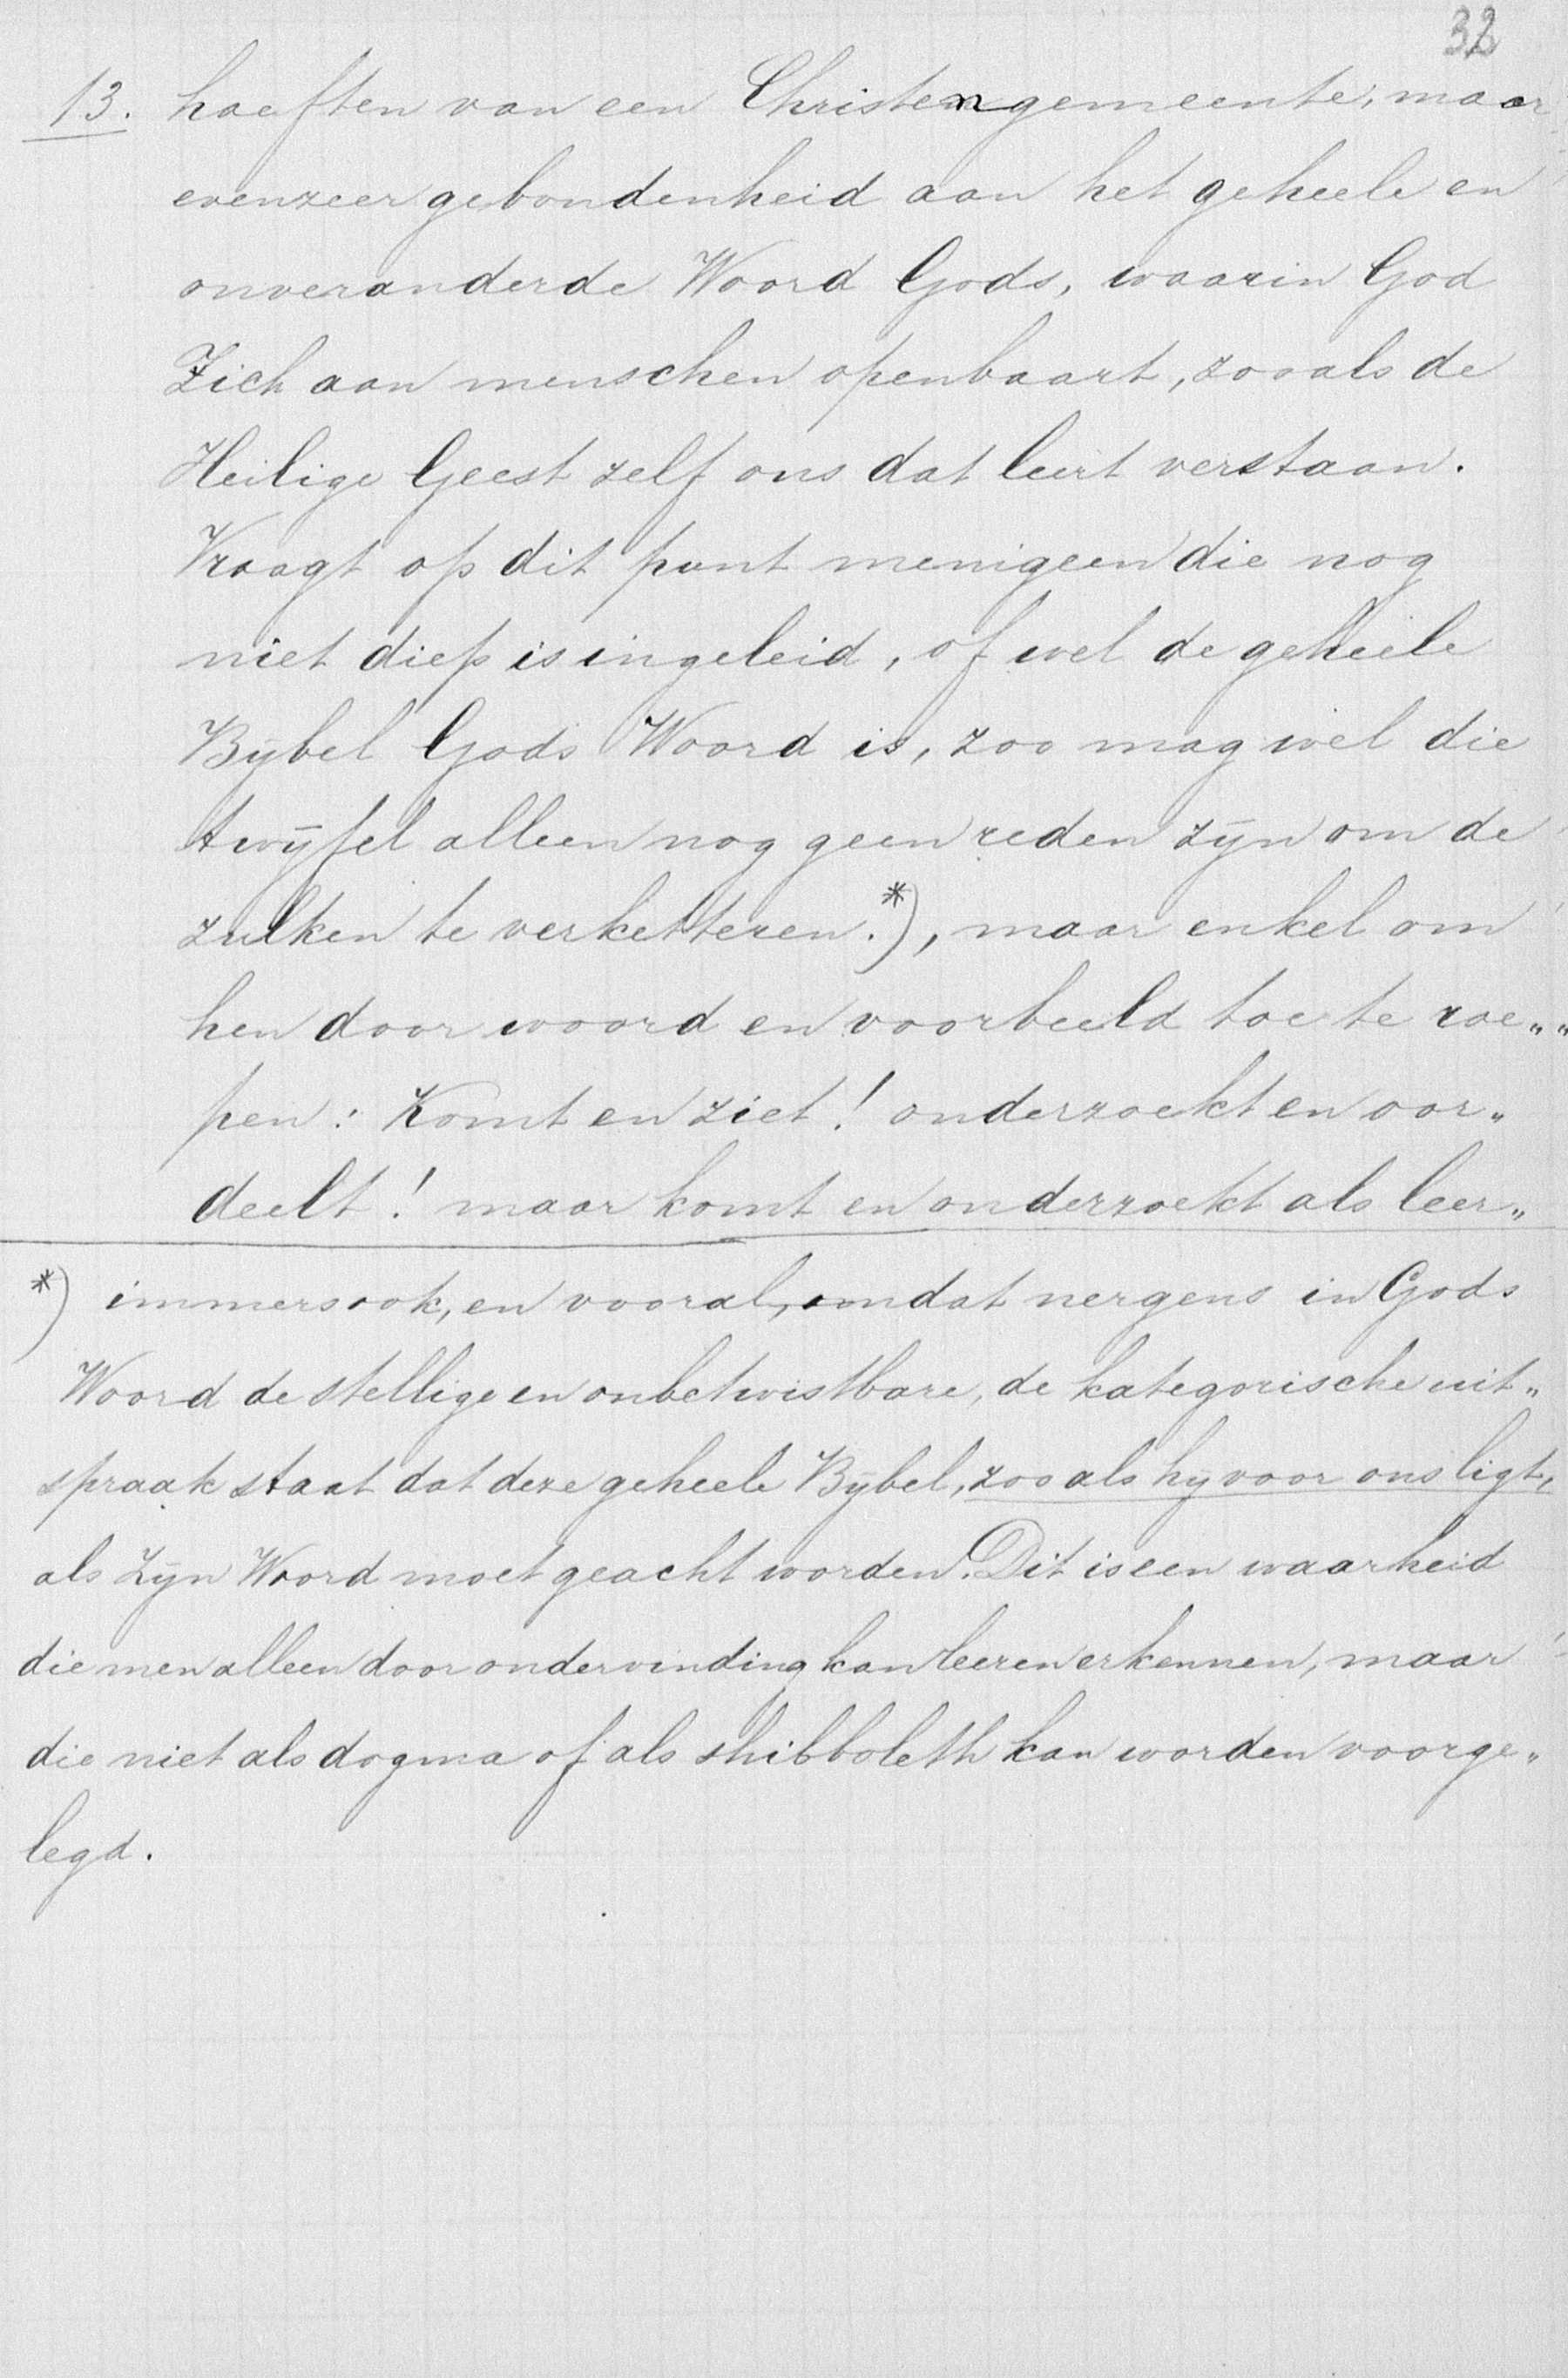 32
13. hoeften van een Christengemeente; maar
evenzeer gebondenheid aan het geheele en
onveranderde Woord Gods, waarin God
Zich aan menschen openbaart, zooals de
Heilige Geest zelf ons dat leert verstaan.
Vraagt op dit punt menigeen die nog
niet diep is ingeleid, of wel de geheele
Bijbel Gods Woord is, zoo mag wel die
twijfel alleen nog geen reden zijn om de
zulken te verketteren.*), maar enkel om
hen door woord en voorbeeld toe te roe„„
pen: Komt en ziet! onderzoekt en oor„
deelt! maar komt en onderzoekt als leer„
*) immers ook, en vooral, omdat nergens in Gods
Woord de stellige en onbetwistbare, de kategorische uit„
spraak staat dat deze geheele Bijbel, zooals hij voor ons ligt,
als Zijn Woord moet geacht worden. Dit is een waarheid
die men alleen door ondervinding kan leeren erkennen, maar
die niet als dogma of als shibboleth kan worden voorge„
legd.